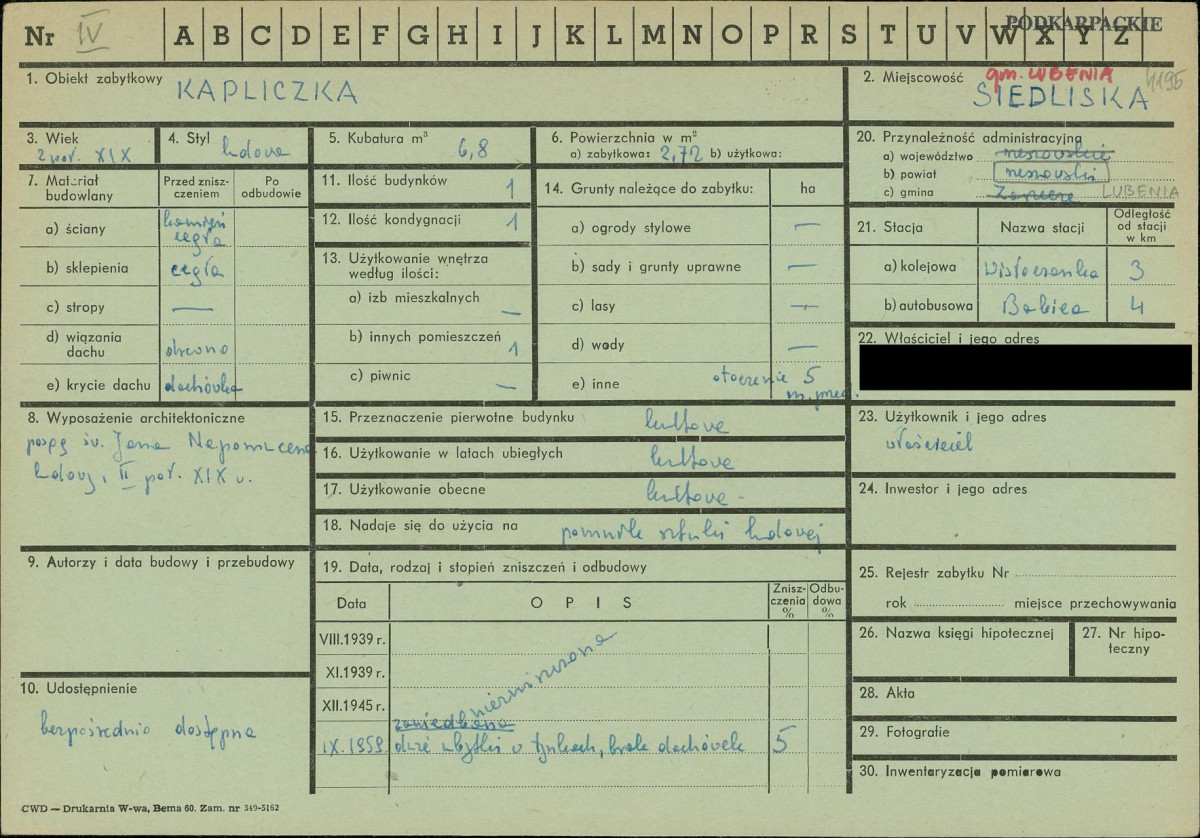 Nr IV A B C D E F G H I J K L M N O P R S T U V W X Y Z
PODKARPACKIE
1. Obiekt zabytkowy KAPLICZKA
2. Miejscowość gm. LUBENIA 4195
SIEDLISKA
3. Wiek
2 poł. XIX
4. Styl ludowa
5. Kubatura m³ 6,8
6. Powierzchnia w m²
a) zabytkowa: 2,72 b) użytkowa:
7. Materiał budowlany
Przed zniszczeniem
Po odbudowie
a) ściany kamień
cegła
b) sklepienia cegła
c) stropy —
d) wiązania
dachu drewno
e) krycie dachu dachówka
8. Wyposażenie architektoniczne
św. Jana Nepomucena
ludowy, II poł. XIX w.
9. Autorzy i data budowy i przebudowy
10. Udostępnienie
bezpośrednio dostępna
11. Ilość budynków 1
12. Ilość kondygnacji 1
13. Użytkowanie wnętrza
według ilości:
a) izb mieszkalnych —
b) innych pomieszczeń 1
c) piwnic —
14. Grunty należące do zabytku: ha
a) ogrody stylowe —
b) sady i grunty uprawne —
c) lasy —
d) wody —
e) inne otoczenie 5
15. Przeznaczenie pierwotne budynku kultowe
16. Użytkowanie w latach ubiegłych kultowe
17. Użytkowanie obecne kultowe -
18. Nadaje się do użycia na pomnik sztuki ludowej
19. Data, rodzaj i stopień zniszczeń i odbudowy
Data
OPIS
Zniszczenia %
Odbudowa %
VIII.1939 r.
XI.1939 r.
XII.1945 r.
niezniszczona
zaniedbana
IX.1959 duże ubytki w tynkach, brak dachówek 5
20. Przynależność administracyjna
a) województwo rzeszowskie
b) powiat rzeszowski
c) gmina LUBENIA
21. Stacja
Nazwa stacji
Odległość
od stacji
w km
a) kolejowa Wisłoczanka 3
b) autobusowa Babica 4
22. Właściciel i jego adres
23. Użytkownik i jego adres
właściciel
24. Inwestor i jego adres
25. Rejestr zabytku Nr
rok miejsce przechowywania
26. Nazwa księgi hipotecznej
27. Nr hipoteczny
28. Akta
29. Fotografie
30. Inwentaryzacja pomiarowa
CWD — Drukarnia W-wa, Bema 60. Zam. nr 549-5162